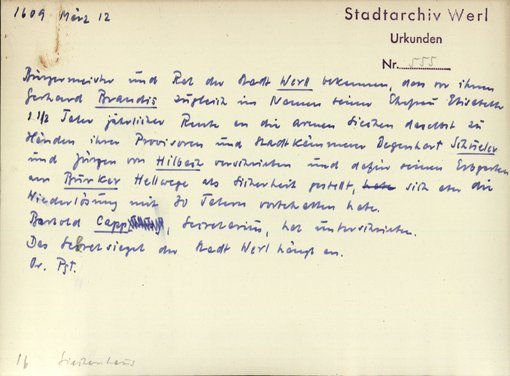 1609 März 12
Stadtarchiv Werl
Urkunden
Nr. 555
Bürgermeister und Rat der Stadt Werl bekennen, dass vor ihnen
Gerhard Brandis zugleich im Namen seiner Ehefrau Elisabeth
1 1/2 Taler jährlicher Rente an die armen Siechen daselbst zu
Händen ihrer Provisoren und Stadtkämmerer Degenhart Schüler
und Jürgen von Hilbeck verschrieben und dafür seinen Erbgarten
am Bürker Hellwege als Sicherheit gestellt, sich aber die
Wiederlösung mit 30 Talern vorbehalten habe.
Bartold Capp, Secretarius, hat unterschrieben.
Das Sekretsiegel der Stadt Werl hängt an.
Or. Pgt.
Siechenhaus